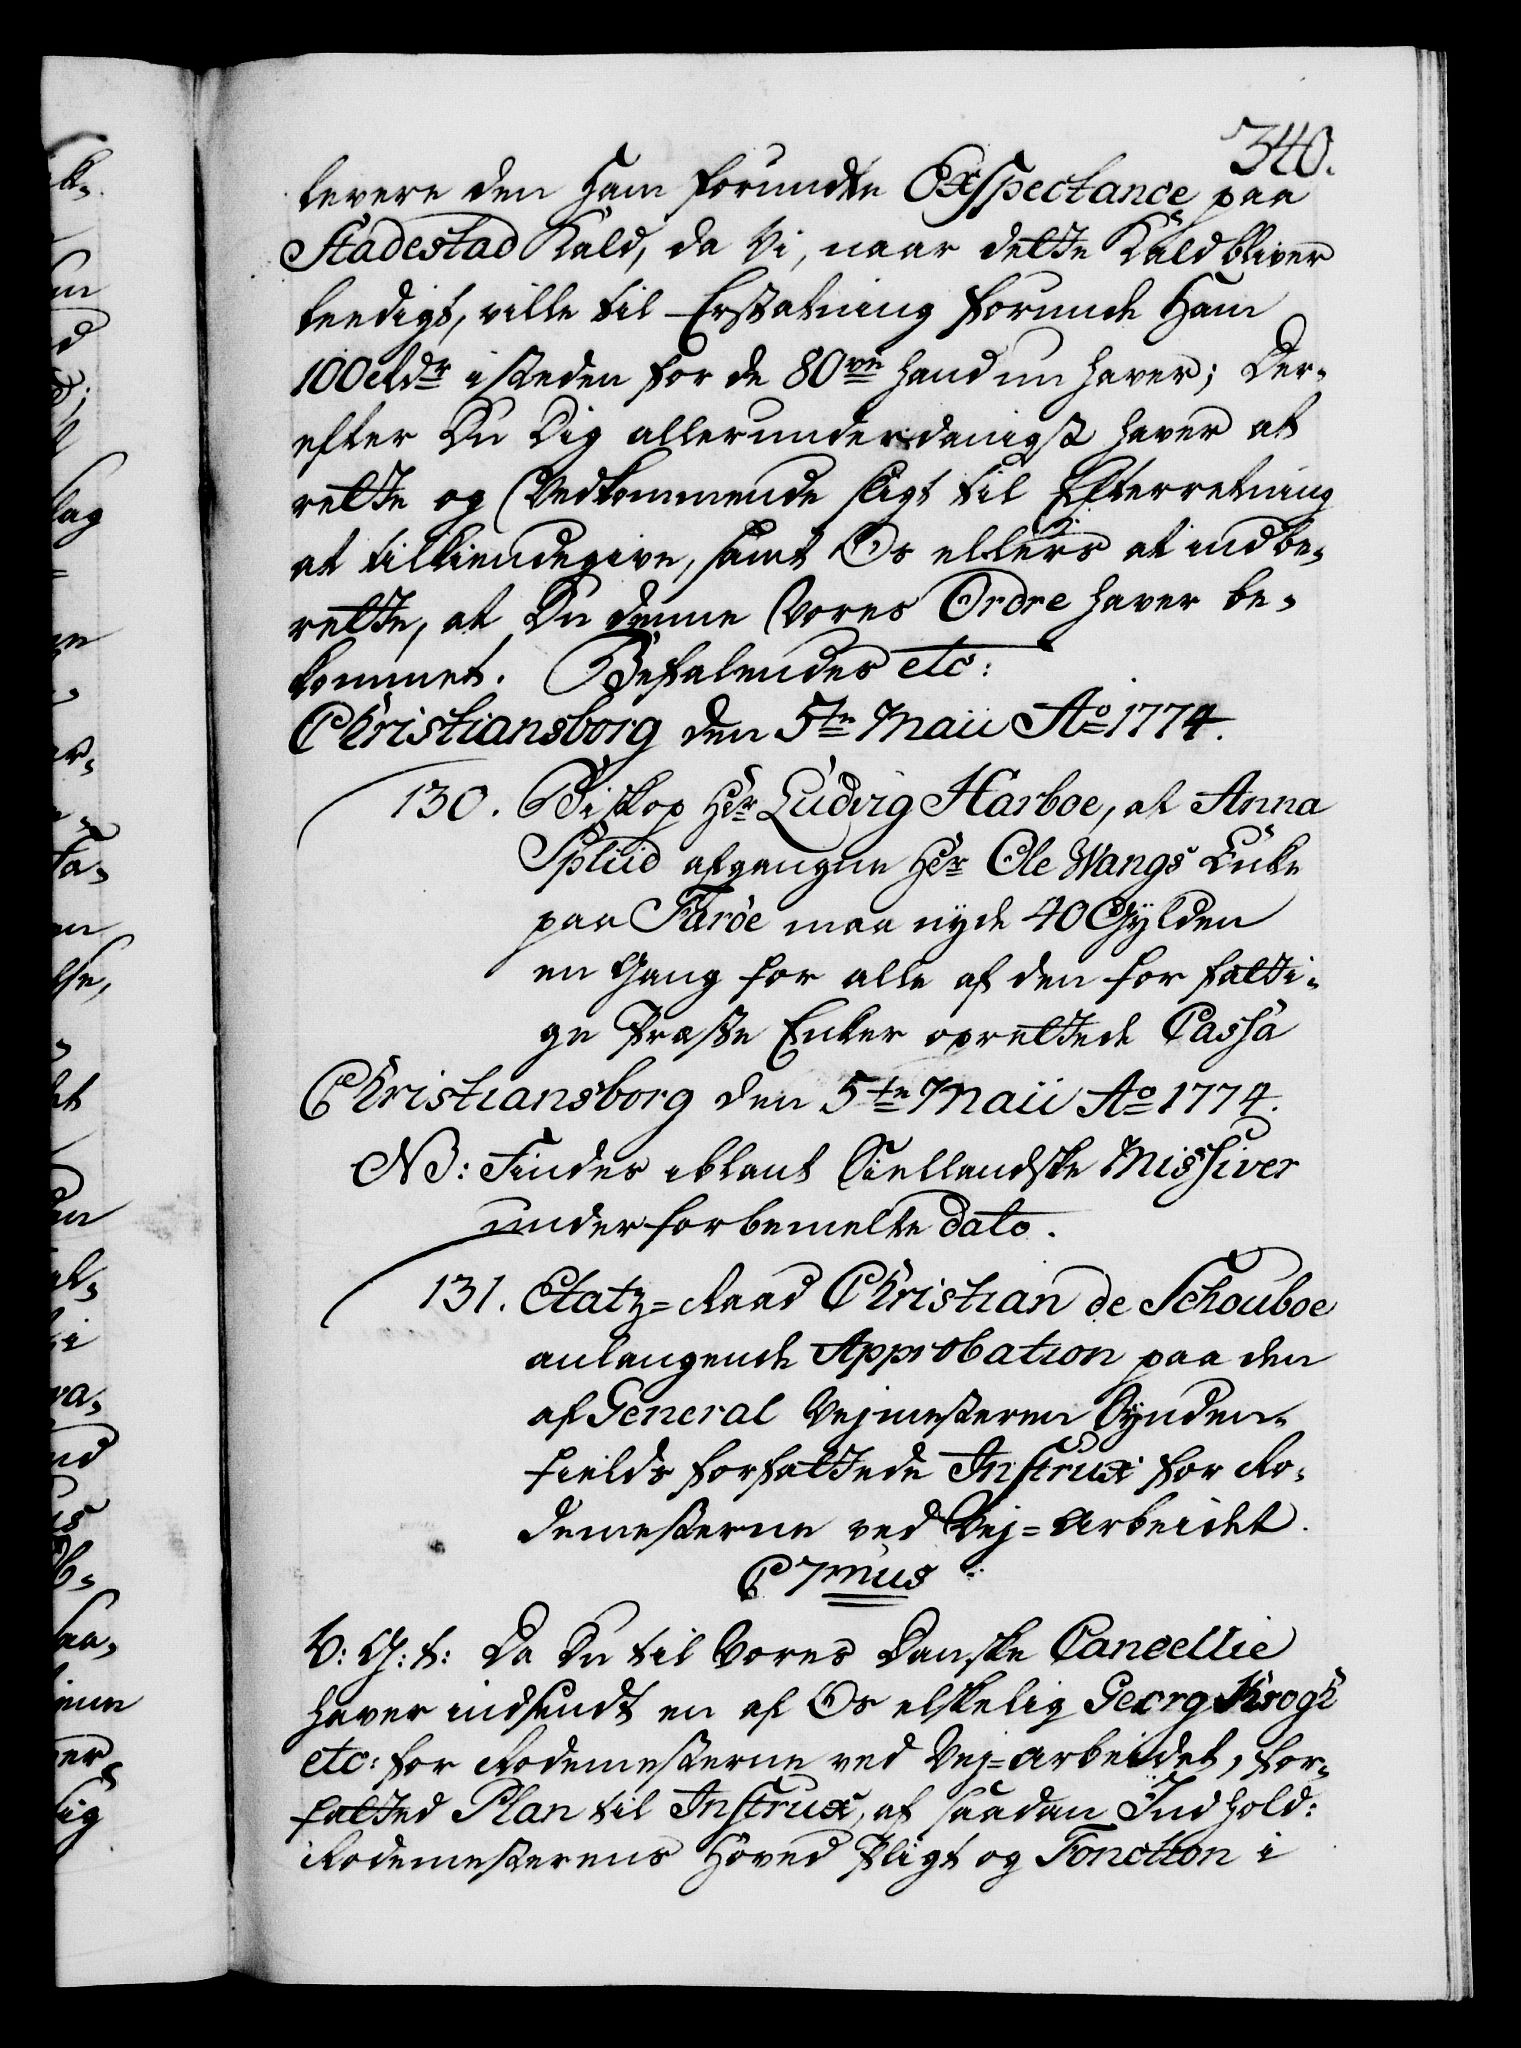 340.
levere den Ham forundte Exspectance paa
Stadestad Kald, da Vi, naar dette Kald bliver
leedigt, ville til Erstatning forunde Ham
100 Rdr isteden for de 80ve hand nu haver; Der-
efter Du Dig allerunderdanigst haver at
rette og Vedkommende sligt til Efterretning
at tilkiendegive, samt Os ellers at indbe-
rette, at Du denne Vores Ordre haver be-
kommet. Befalendes etc:
Christiansborg den 5te Maii Ao 1774.
130. Biskop Hr Ludvig Harboe, at Anna
Splüd afgangne Hr Ole Wangs Enke
paa Færöe maa nyde 40 Gylden
en Gang for alle af den for fatti-
ge Præste Enker oprettede Cassa
Christiansborg den 5te Maii Ao 1774.
NB: Findes iblant Siellandske Missiver
under forbemelte Dato.
131. Etatz-Raad Christian de Schouboe
anlangende Approbation paa den
af General Vejmesteren Synden-
fields forfattede Instrux for Ro-
demesterne ved Vej-Arbeidet.
C 7mus
V: G: t: Da Du til Vores Danske Cancellie
haver indsendt en af Os elskelig Georg Krogh
etc: for Rodemesterne ved Vej-Arbeidet, for-
fatted Plan til Instrux, af saadan Indhold:
Rodemesterens Hoved Pligt og Fonction i